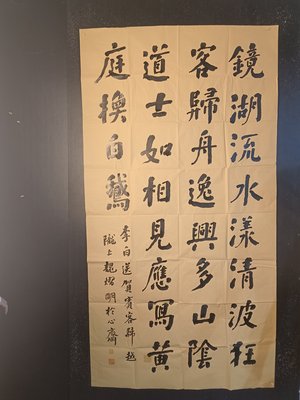 鏡湖流水漾清波狂
客歸舟逸興多山陰
道士如相見應寫黃
庭換白鵞
李白送賀賓客歸越
隴上魏增明於心齋